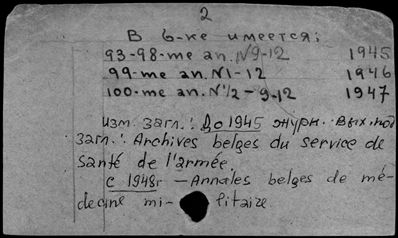 2
В б-ке имеется:
93-98-me an. N9-12 1945
99-me an. N1-12 1946
100-me an. N1/2-9-12 1947
Изм. загл.: До 1945 журн. вых. под
загл.: Archives belges du service de
santé de l'armée.
с 1948г — Annales belges de mé-
decine mi- litaire